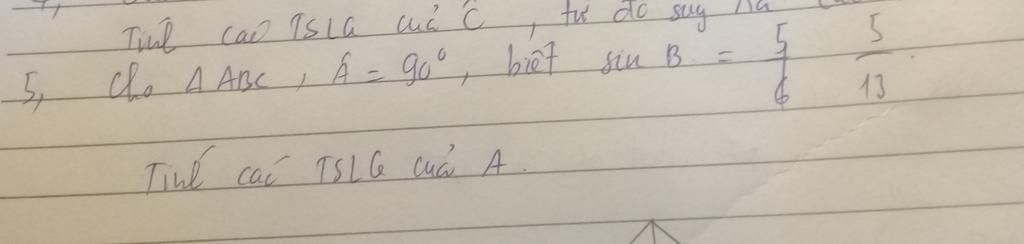 Tính các TSLG của Ĉ, từ đó suy ra
5, Cho Δ ABC, Â = 90°, biết sin B = 5/6 5/13.
Tính các TSLG của A.